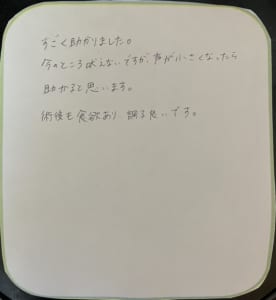 すごく助かりました。
今のところ吠えないですが、声が小さくなったら
助かると思います。
術後も食欲あり、調子良いです。